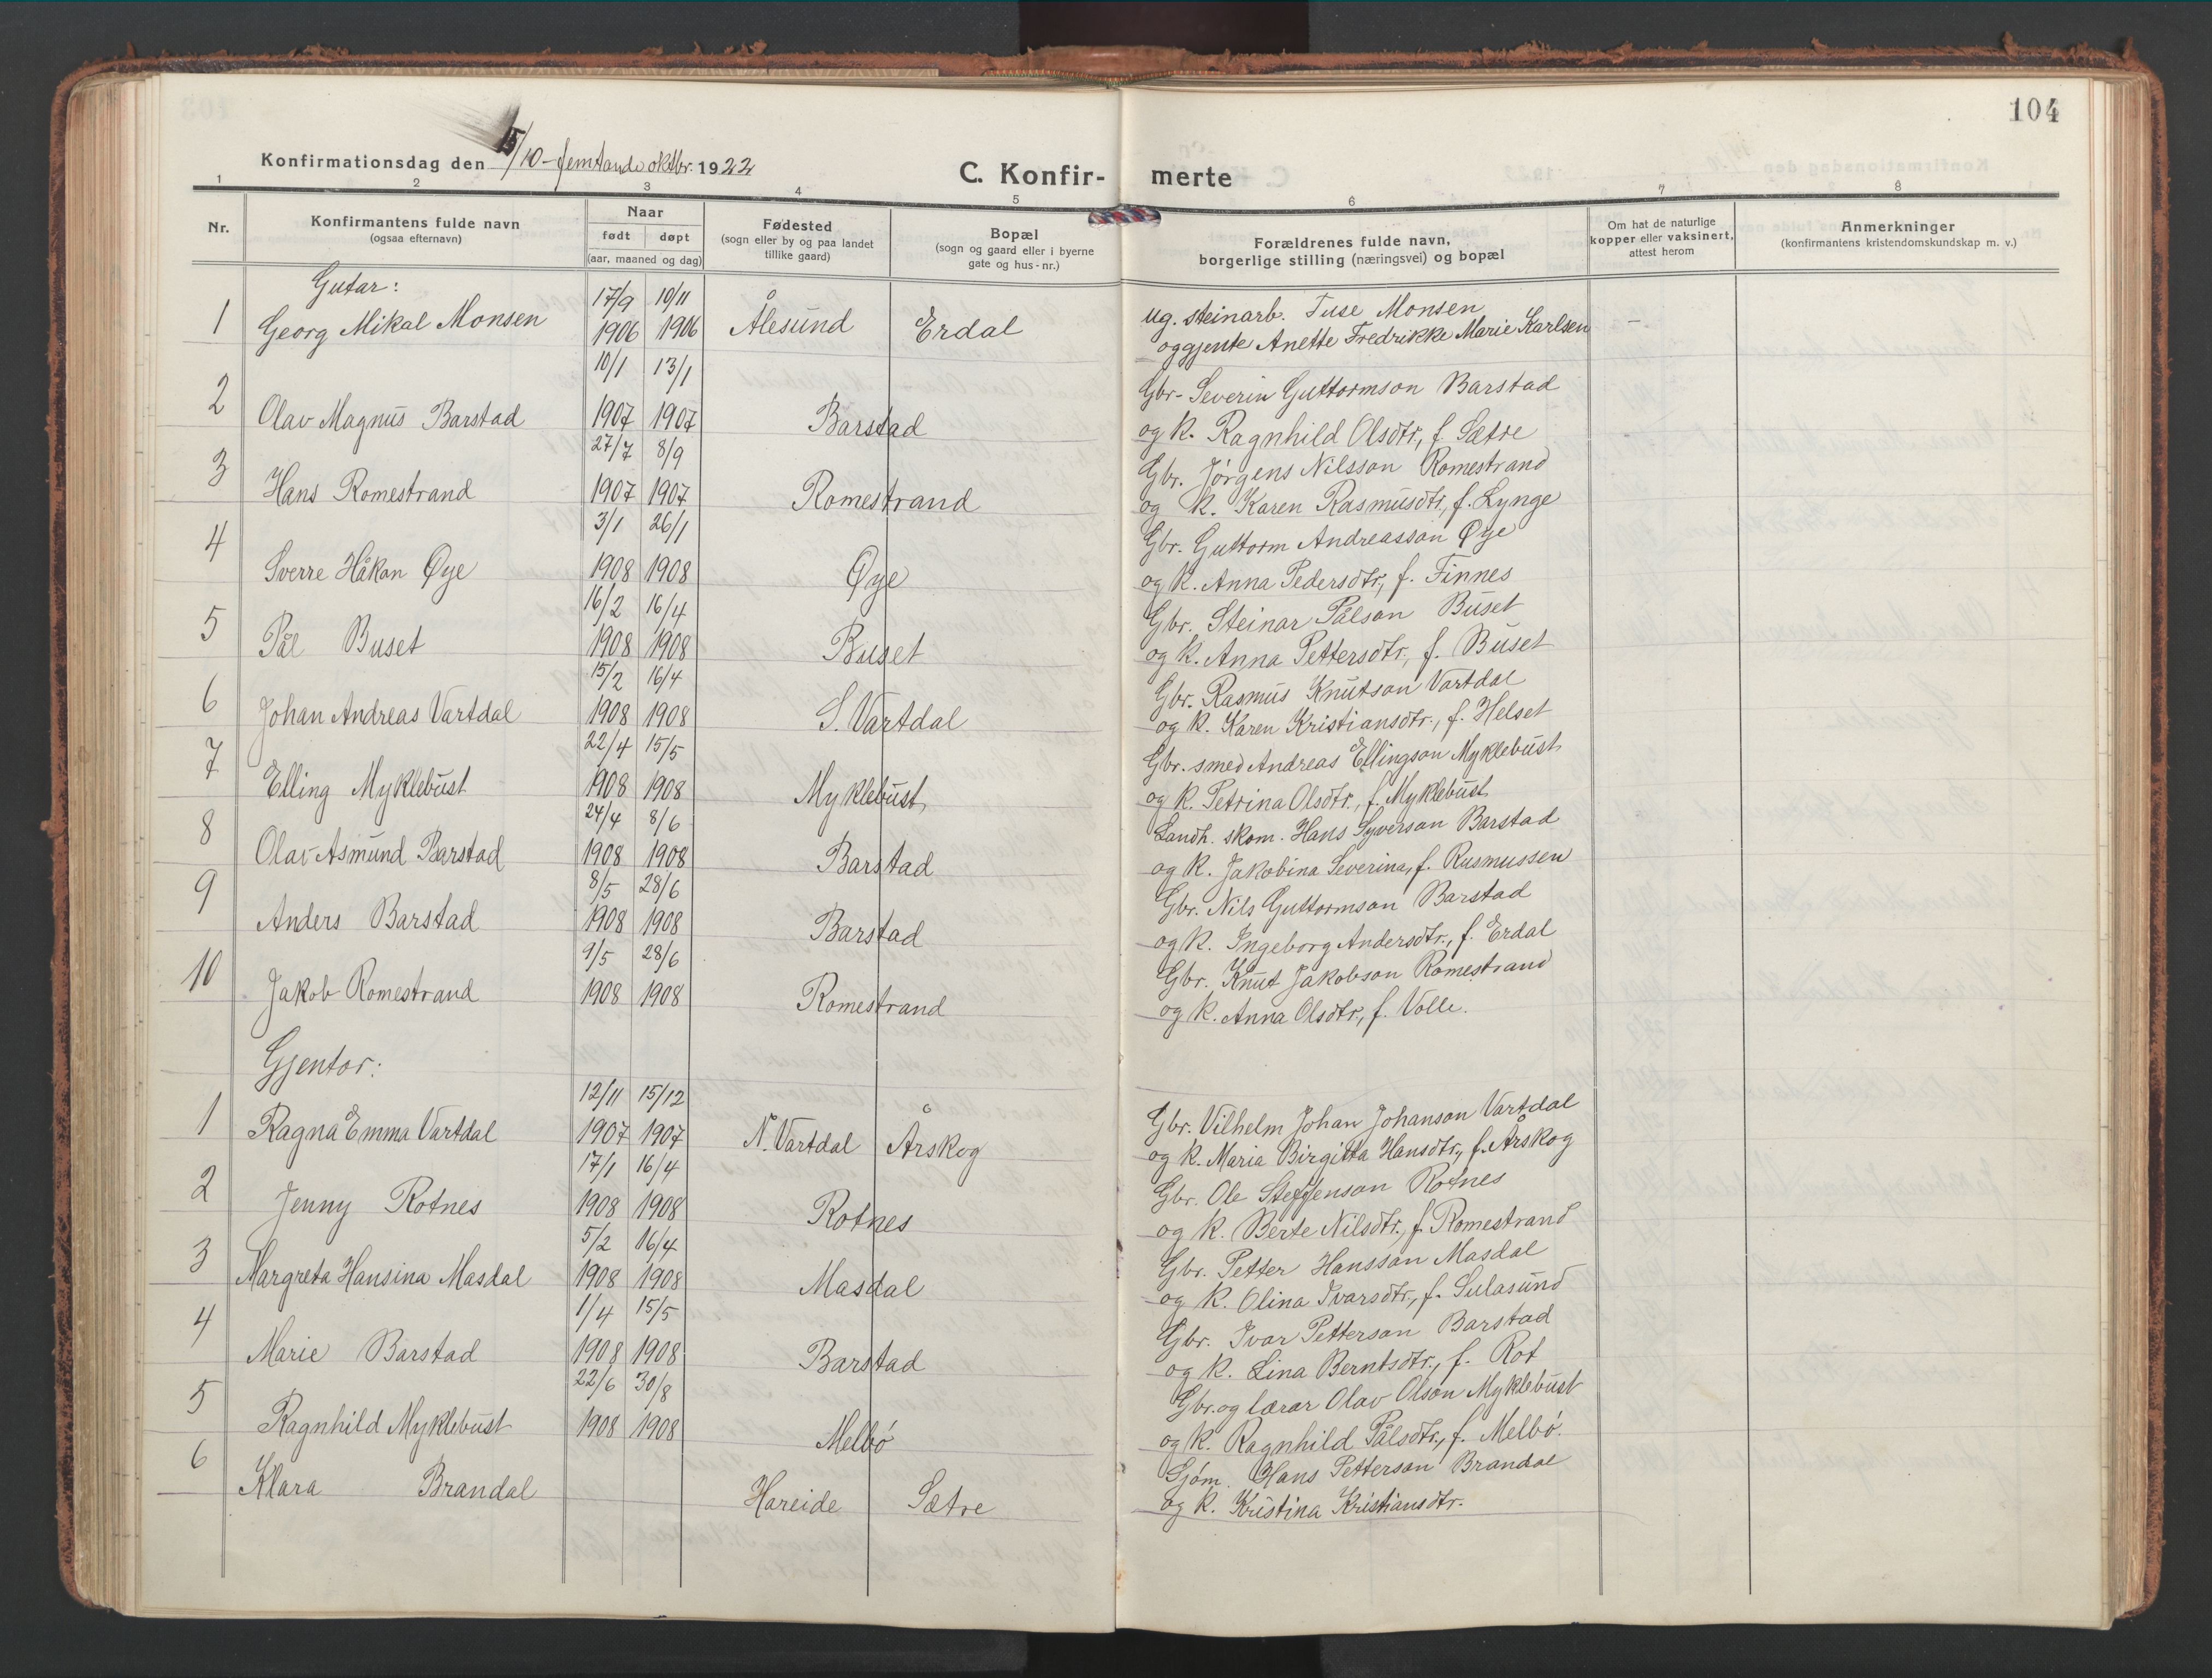 104
Konfirmationsdag den 15/10 - femtande oktbr. 1922
C. Konfir- merte
1 2 3 4 5 6 7 8
Nr.
Konfirmantens fulde navn
(ogsaa efternavn)
Naar
født døpt
(aar, maaned og dag)
Fødested
(sogn eller by og paa landet
tillike gaard)
Bopæl
(sogn og gaard eller i byerne
gate og hus-nr.)
Forældrenes fulde navn,
borgerlige stilling (næringsvei) og bopæl
Om hat de naturlige
kopper eller vaksinert,
attest herom
Anmerkninger
(konfirmantens kristendomskundskap m. v.)
Gutar:
17/9 10/11 ug. steinarb. Tuse Monsen
1 Georg Mikal Monsen 1906 1906 Ålesund Erdal og gjente Anette Fredrikke Marie Karlsen –
10/1 13/1 Gbr. Severin Guttormson Barstad
2 Olav Magnus Barstad 1907 1907 Barstad og k. Ragnhild Olsdtr., f. Sætre
27/7 8/9 Gbr. Jørgens Nilsson Romestrand
3 Hans Romestrand 1907 1907 Romestrand og k. Karen Rasmusdtr., f. Lynge
3/1 26/1 Gbr. Guttorm Andreasson Øye
4 Sverre Håkon Øye 1908 1908 Øye og k. Anna Pedersdtr., f. Finnes
16/2 16/4 Gbr. Steinar Pålson Buset
5 Pål Buset 1908 1908 Buset og k. Anna Pettersdtr., f. Buset
15/2 16/4 Gbr. Rasmus Knutson Vartdal
6 Johan Andreas Vartdal 1908 1908 S. Vartdal og k. Karen Kristiansdtr., f. Helset
22/4 15/5 Gbr. smed Andreas Ellingson Myklebust
7 Elling Myklebust 1908 1908 Myklebust og k. Petrina Olsdtr., f. Myklebust
24/4 8/6 Landh. skom. Hans Syverson Barstad
8 Olav Asmund Barstad 1908 1908 Barstad og k. Jakobina Severina, f. Rasmussen
8/5 28/6 Gbr. Nils Guttormson Barstad
9 Anders Barstad 1908 1908 Barstad og k. Ingeborg Andersdtr., f. Erdal
9/5 28/6 Gbr. Knut Jakobson Romestrand
10 Jakob Romestrand 1908 1908 Romestrand og k. Anna Olsdtr., f. Volle.
Gjentor:
12/11 15/12 Gbr. Vilhelm Johan Johanson Vartdal
1 Ragna Emma Vartdal 1907 1907 N. Vartdal Årskog og k. Maria Birgitta Hansdtr., f. Årskog
17/1 16/4 Gbr. Ole Steffenson Rotnes
2 Jenny Rotnes 1908 1908 Rotnes og k. Berte Nilsdtr., f. Romestrand
5/2 16/4 Gbr. Petter Hansson Masdal
3 Margreta Hansina Masdal 1908 1908 Masdal og k. Olina Ivarsdtr., f. Sulasund
1/4 15/5 Gbr. Ivar Petterson Barstad
4 Marie Barstad 1908 1908 Barstad og k. Lina Berntsdtr., f. Rot
22/6 30/8 Gbr. og lærar Olav Olson Myklebust
5 Ragnhild Myklebust 1908 1908 Melbö og k. Ragnhild Pålsdtr., f. Melbö.
Sjöm. Hans Petterson Brandal
6 Klara Brandal Hareide Sætre og k. Kristina Kristiansdtr.